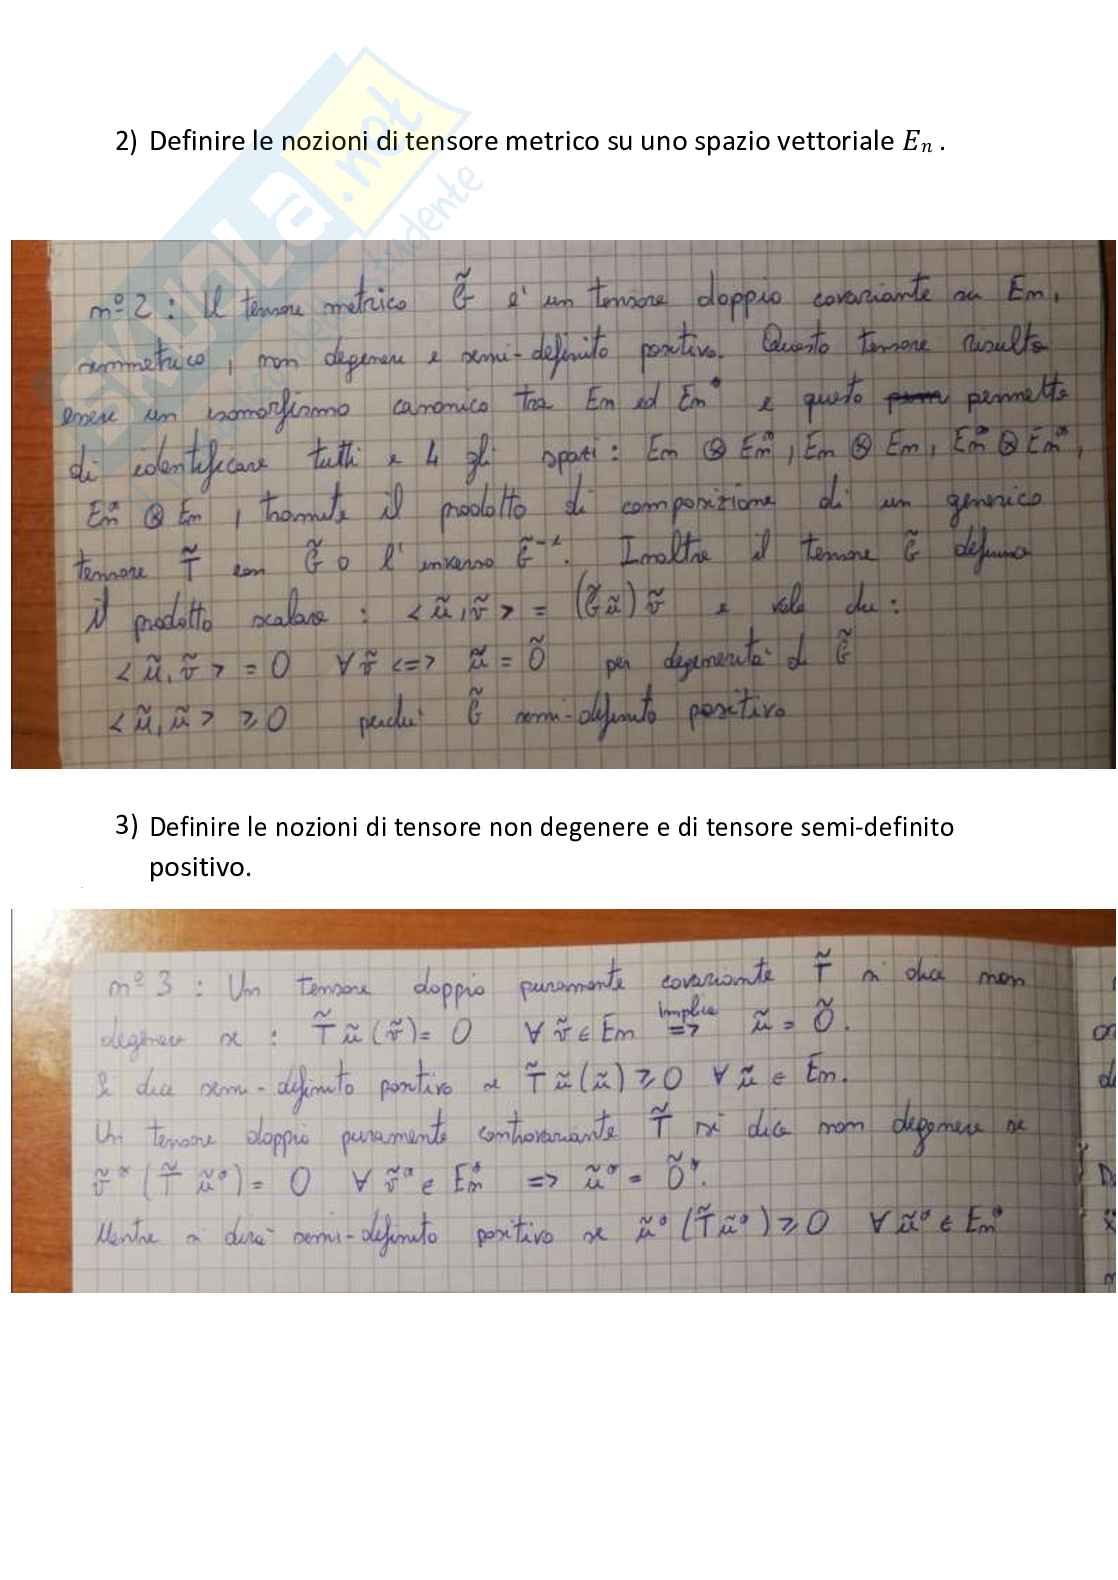 SKUOLA.net
studente
2) Definire le nozioni di tensore metrico su uno spazio vettoriale Eₙ .
n° 2 : Il tensore metrico G̃ e' un tensore doppio covariante su En,
simmetrico, non degenere e semi-definito positivo. Questo tensore risulta
essere un isomorfismo canonico tra En ed En* e questo permette
di identificare tutti e 4 gli spazi : En ⊗ En*, En ⊗ En, En* ⊗ En*,
En* ⊗ En, tramite il prodotto di composizione di un generico
tensore T̃ con G̃ o l' inverso G̃⁻¹. Inoltre il tensore G̃ definisce
il prodotto scalare : < ũ, ṽ > = (G̃ ũ) ṽ e vale che :
< ũ, ṽ > = 0 ∀ ṽ <=> ũ = 0̃ per degenerita' di G̃
< ũ, ũ > ⩾ 0 perche' G̃ semi-definito positivo
3) Definire le nozioni di tensore non degenere e di tensore semi-definito
positivo.
n° 3 : Un tensore doppio puramente covariante T̃ si dice non
degenere se : T̃ ũ (ṽ) = 0 ∀ ṽ ∈ En implica => ũ = 0̃.
Si dice semi-definito positivo se T̃ ũ (ũ) ⩾ 0 ∀ ũ ∈ En.
Un tensore doppio puramente controvariante T̃ si dice non degenere se
ṽ* (T̃ ũ*) = 0 ∀ ṽ* ∈ En* => ũ* = 0̃*.
Mentre si dira' semi-definito positivo se ũ* (T̃ ũ*) ⩾ 0 ∀ ũ* ∈ En*